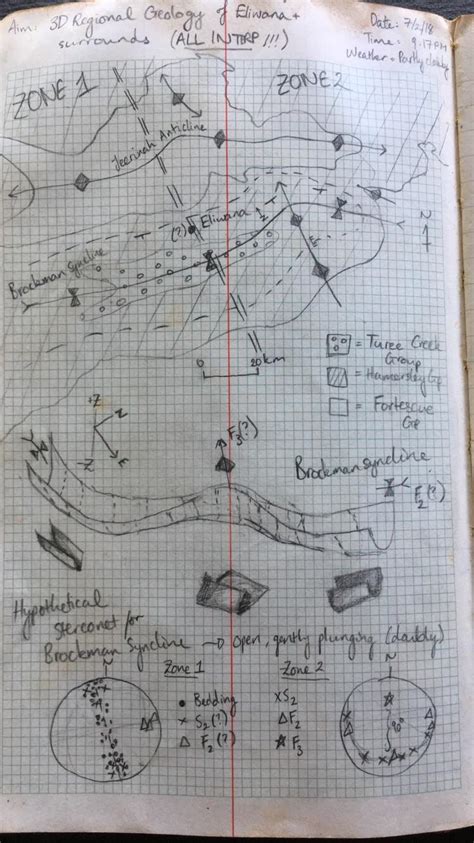 Aim: 3D Regional Geology of Eliwana +
surrounds (ALL INTERP!!!)
Date: 7/2/18
Time: 9.17PM
Weather: Partly cloudy
ZONE 1
ZONE 2
Jeerinah Anticline
(?) Eliwana
Brockman Syncline
N
0 20km
= Turee Creek
Group
= Hamersley Gp
= Fortescue
Gp
+Z
-Z
F3(?)
Brockman Syncline
F2(?)
Hypothetical
stereonet for
Brockman Syncline → open, gently plunging (doubly)
Zone 1
Zone 2
N
• Bedding
x S2(?)
△ F2(?)
x S2
△ F2
☆ F3
N
90°